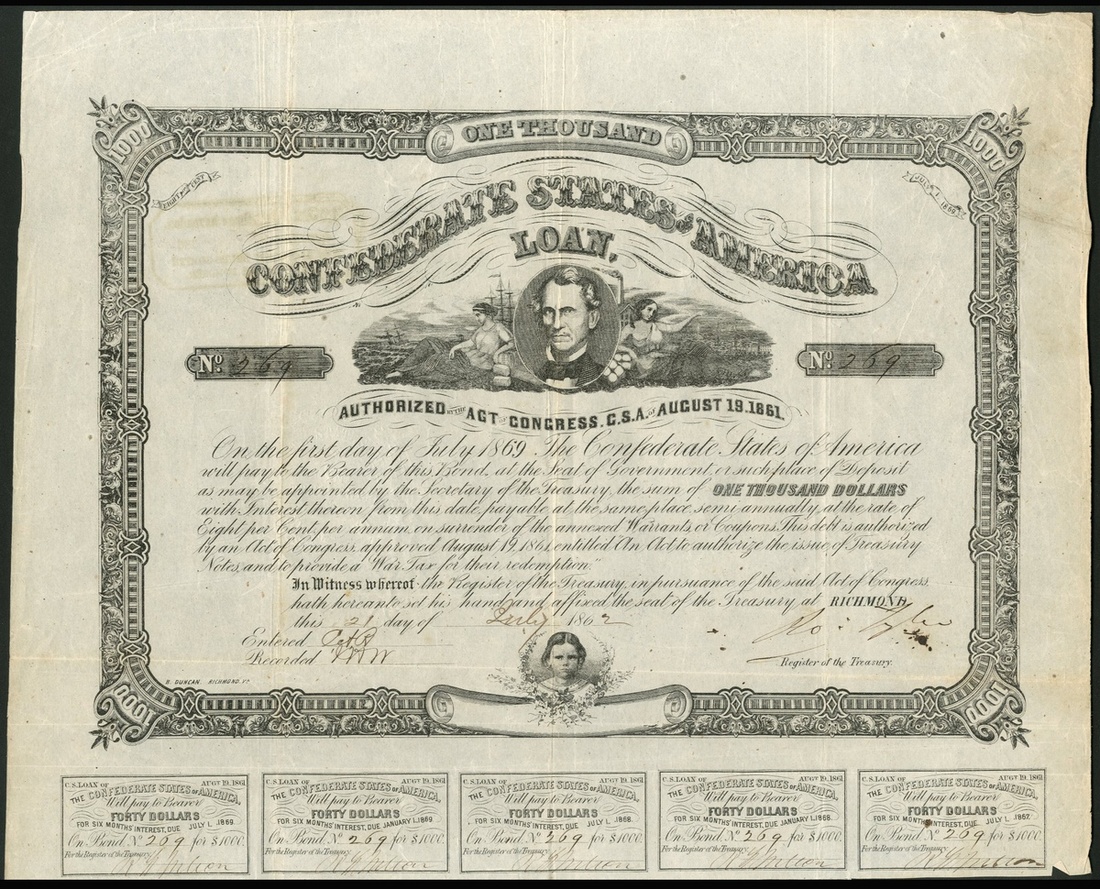 ONE THOUSAND
1000
1000
EIGHT PER CENT
JULY 1. 1869
CONFEDERATE STATES of AMERICA
LOAN,
No. 269
No. 269
AUTHORIZED BY THE ACT OF CONGRESS. C.S.A. OF AUGUST 19. 1861.
On the first day of July 1869 The Confederate States of America
will pay to the Bearer of this Bond, at the Seat of Government, or such place of Deposit
as may be appointed by the Secretary of the Treasury, the sum of ONE THOUSAND DOLLARS
with Interest thereon from this date, payable at the same place, semi-annually, at the rate of
Eight per Cent, per annum, on surrender of the annexed Warrants, or Coupons. This debt is authorized
by an Act of Congress, approved August 19, 1861, entitled An Act to authorize the issue of Treasury
Notes, and to provide a War Tax for their redemption.
In Witness whereof the Register of the Treasury, in pursuance of the said Act of Congress,
hath hereunto set his hand and affixed the seal of the Treasury, at RICHMOND,
this 21 day of July 1862
Entered
Recorded
Ro. Tyler
Register of the Treasury.
B. DUNCAN RICHMOND, VA.
1000
1000
C.S. LOAN OF AUGT 19, 1861
THE CONFEDERATE STATES OF AMERICA,
Will pay to Bearer
FORTY DOLLARS
FOR SIX MONTHS' INTEREST, DUE JULY 1, 1869.
On Bond, No. 269 for $1000.
For the Register of the Treasury.
C.S. LOAN OF AUGT 19, 1861
THE CONFEDERATE STATES OF AMERICA,
Will pay to Bearer
FORTY DOLLARS
FOR SIX MONTHS' INTEREST, DUE JANUARY 1, 1869.
On Bond, No. 269 for $1000.
For the Register of the Treasury.
C.S. LOAN OF AUGT 19, 1861
THE CONFEDERATE STATES OF AMERICA,
Will pay to Bearer
FORTY DOLLARS
FOR SIX MONTHS' INTEREST, DUE JULY 1, 1868.
On Bond, No. 269 for $1000.
For the Register of the Treasury.
C.S. LOAN OF AUGT 19, 1861
THE CONFEDERATE STATES OF AMERICA,
Will pay to Bearer
FORTY DOLLARS
FOR SIX MONTHS' INTEREST, DUE JANUARY 1, 1868.
On Bond, No. 269 for $1000.
For the Register of the Treasury.
C.S. LOAN OF AUGT 19, 1861
THE CONFEDERATE STATES OF AMERICA,
Will pay to Bearer
FORTY DOLLARS
FOR SIX MONTHS' INTEREST, DUE JULY 1, 1867.
On Bond, No. 269 for $1000.
For the Register of the Treasury.